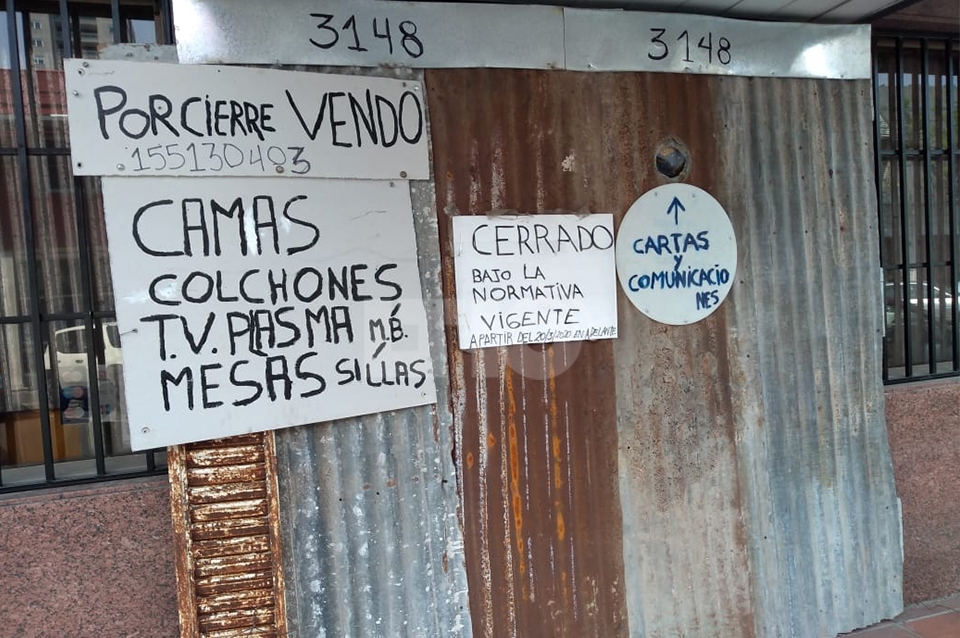 3148
3148
POR CIERRE VENDO
155130403
CAMAS
COLCHONES
T.V. PLASMA M.B.
MESAS SILLAS
CERRADO
BAJO LA
NORMATIVA
VIGENTE
A PARTIR DEL 20/3/2020 EN ADELANTE
CARTAS
y
COMUNICACIO
NES